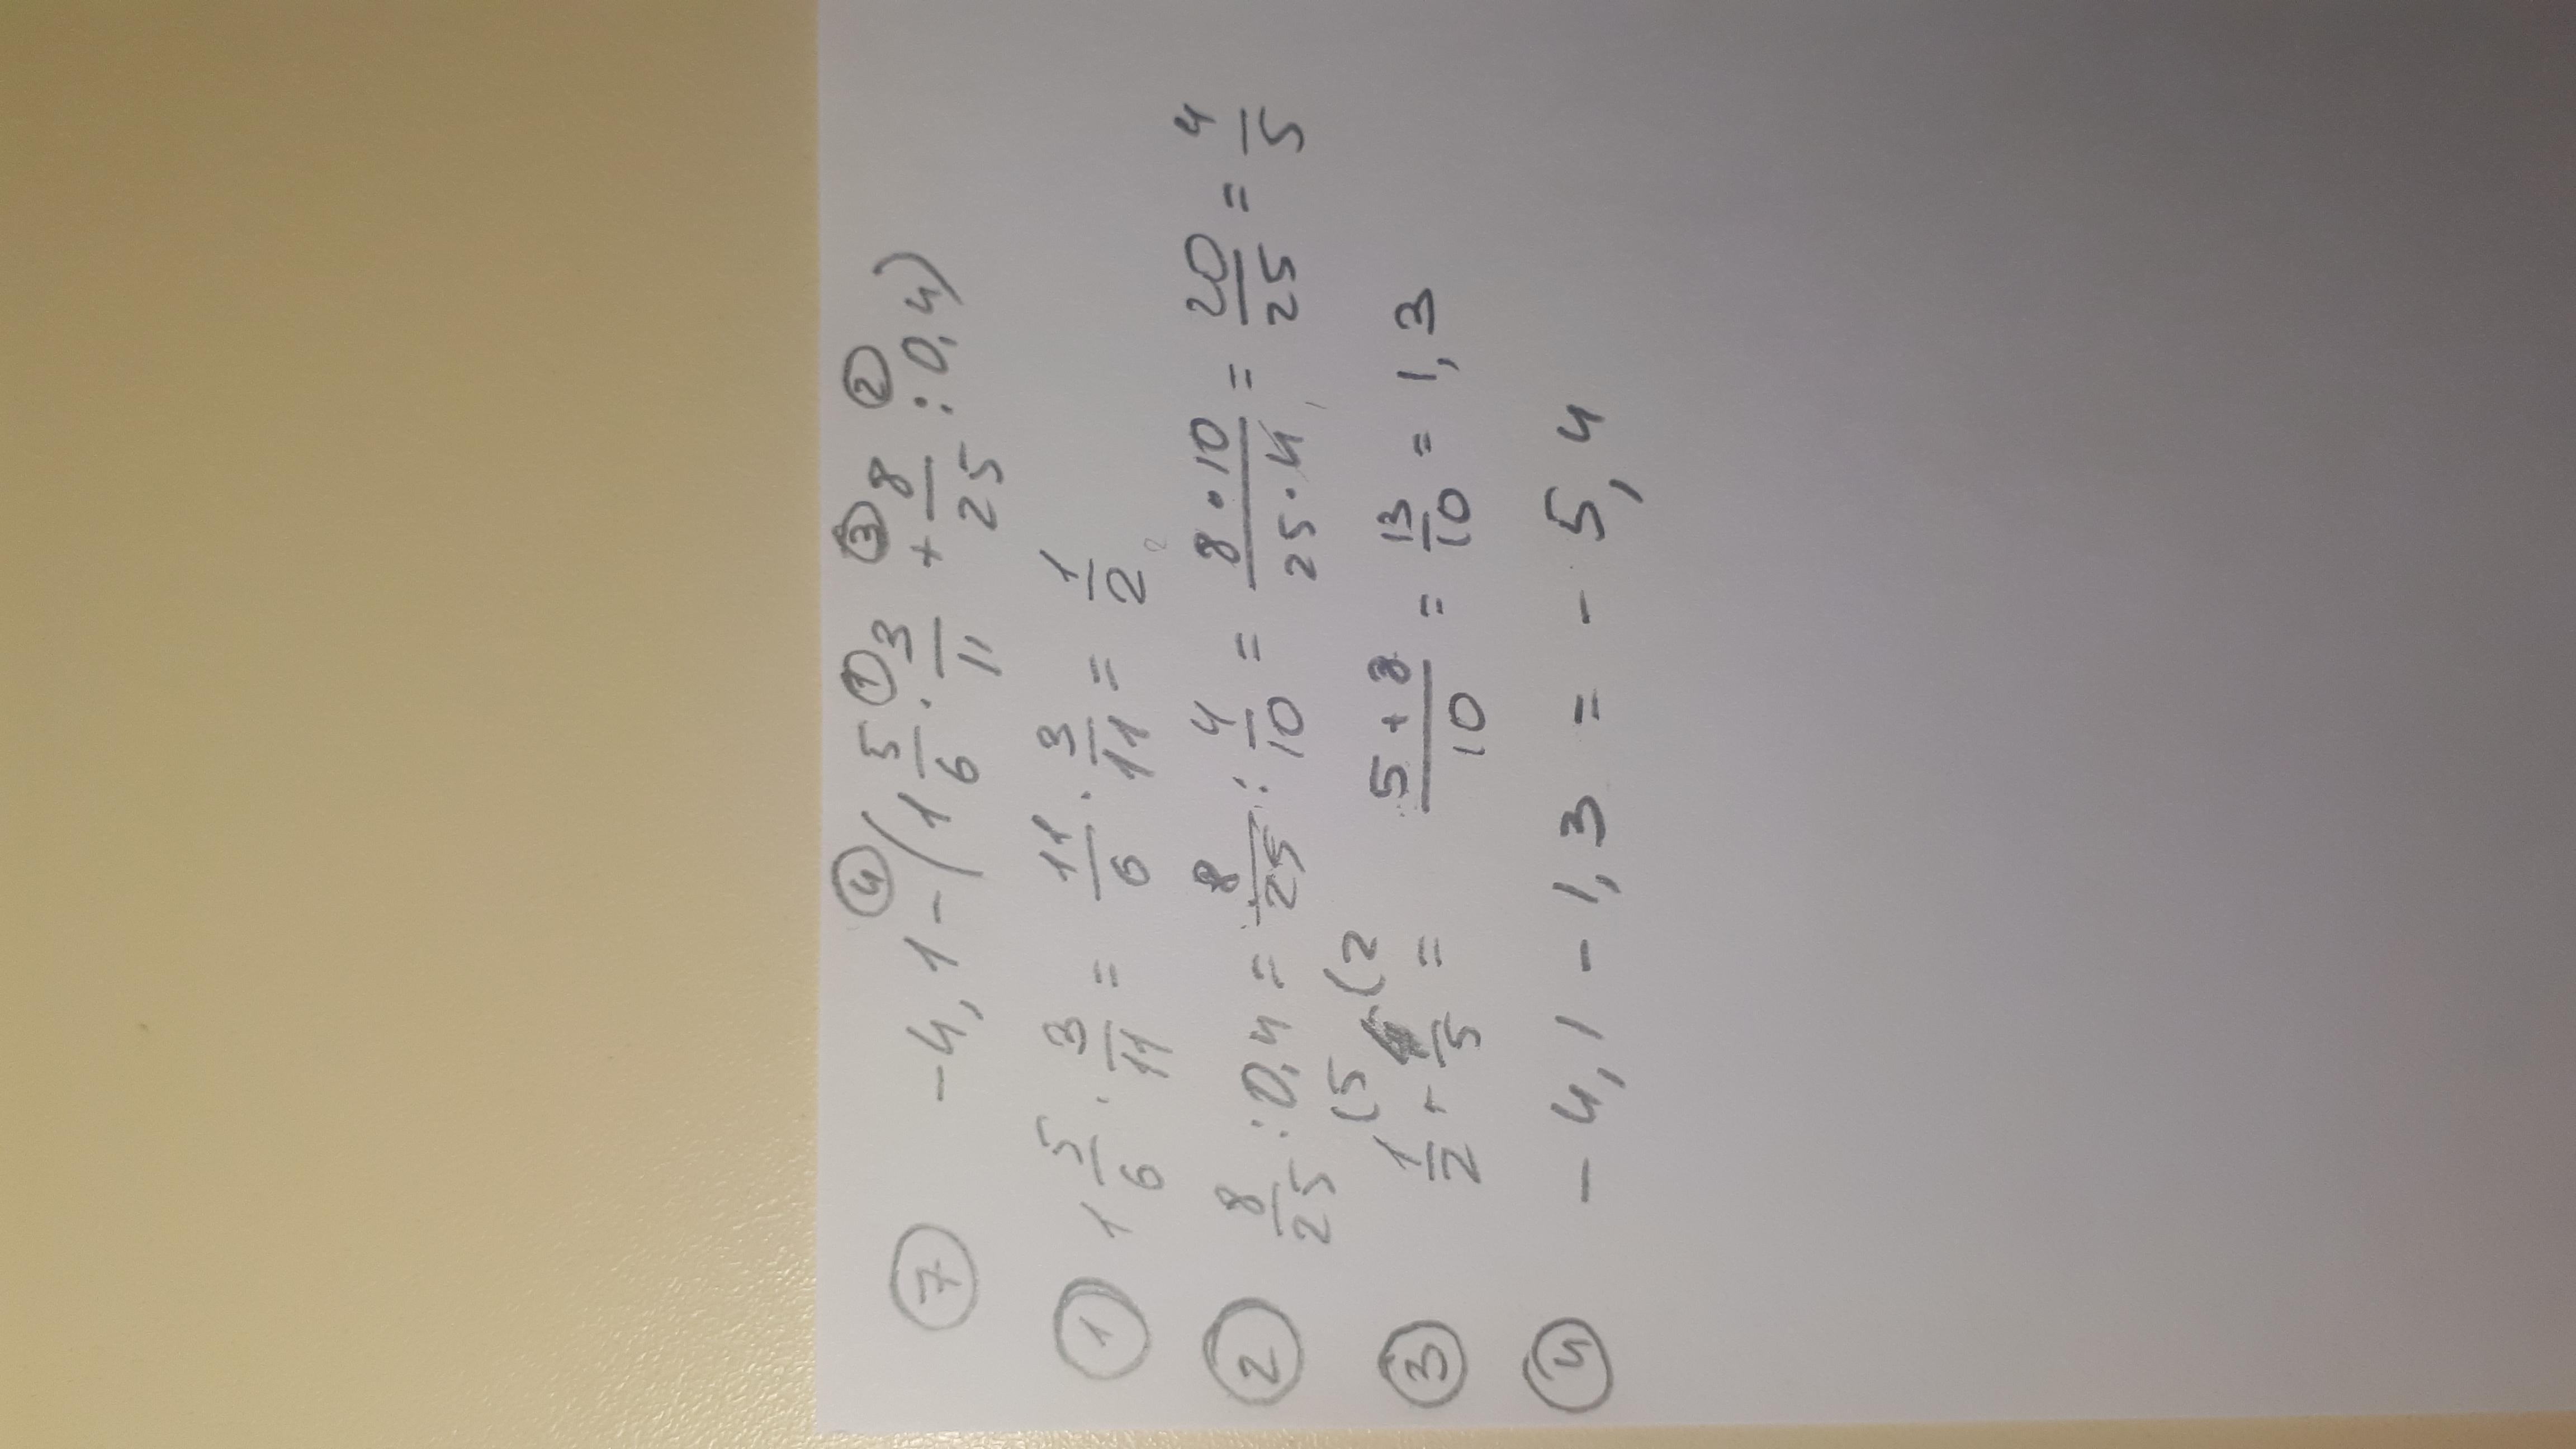 ⑦ -4,1 - (1 5/6 · 3/11 + 8/25 : 0,4)
④ ① ③ ②
① 1 5/6 · 3/11 = 11/6 · 3/11 = 1/2
② 8/25 : 0,4 = 8/25 : 4/10 = 8·10/25·4 = 20/25 = 4/5
(5 (2
③ 1/2 + 4/5 = 5+8/10 = 13/10 = 1,3
④ -4,1 - 1,3 = -5,4